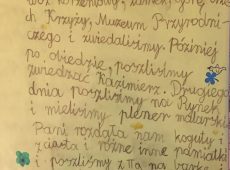 wóz korzeniowy, zamek, górę, trzech
ch Krzyży, Muzeum Przyrodni-
czego i zwiedaliśmy. Później
po obiedzie, poszliśmy
zwiedzać Kazimierz. Drugiego
dnia poszliśmy na Rynek
i mieliśmy plener malarski
Pani rozdała nam koguty z
ciasta i różne inne pamiątki
i poszliśmy z na